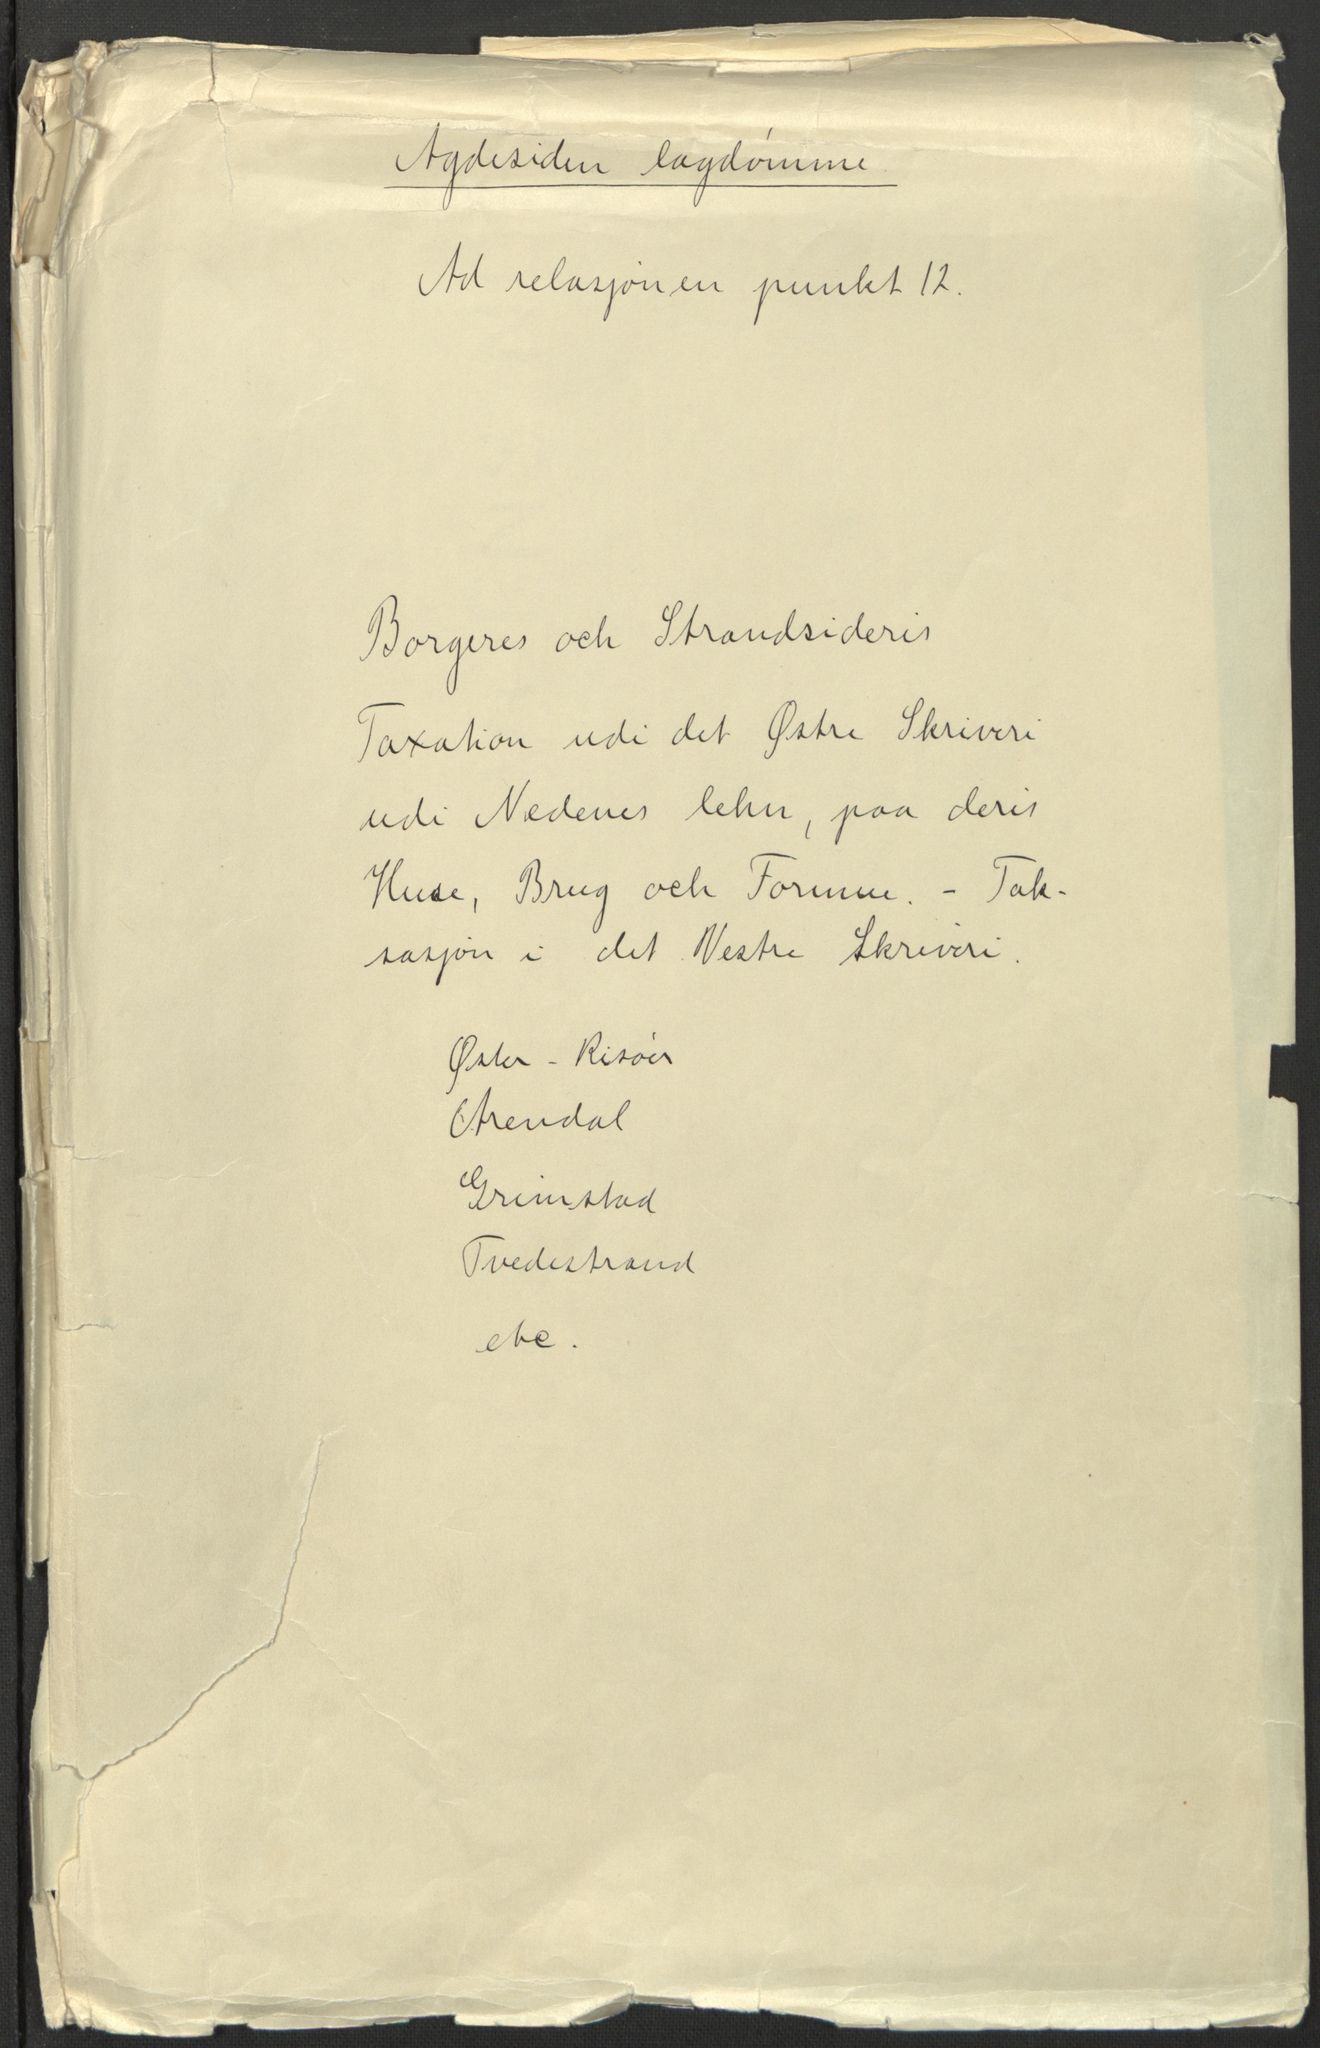 Agdesiden lagdømme
Ad relasjonen punkt 12.
Borgeres och Strandsideris
Taxation udi det Østre Skriveri
udi Nedenes lehn, paa deris
Huse, Brug och Formue. - Tak-
sasjon i det Vestre Skriveri.
Øster - Risøer
Arendal
Grimstad
Tvedestrand
etc.